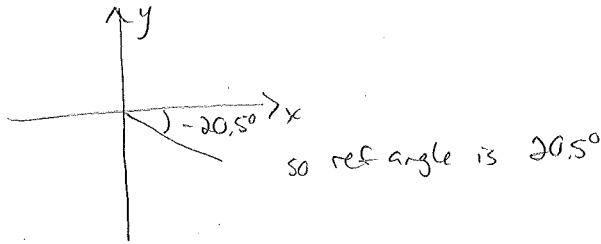 y
x
-20.5°
so ref angle is 20.5°